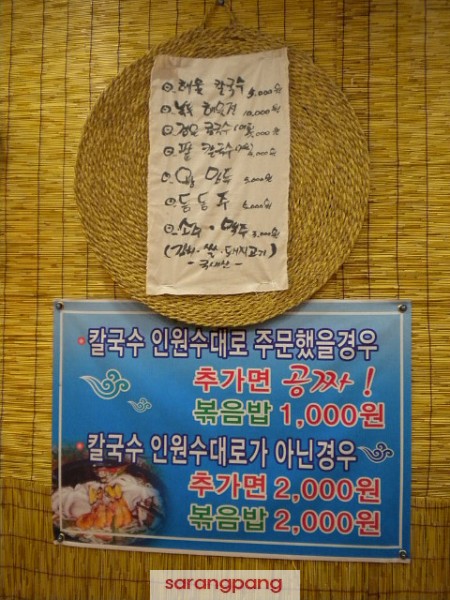 해물 칼국수 5,000원
녹두 해물전 10,000원
검정 콩국수
팥 칼국수
왕 만두 5,000원
동동주 6,000원
소주 · 맥주 3,000원
(김치 · 쌀 · 돼지고기)
- 국내산 -
• 칼국수 인원수대로 주문했을경우
추가면 공짜!
볶음밥 1,000원
• 칼국수 인원수대로가 아닌경우
추가면 2,000원
볶음밥 2,000원
sarangpang